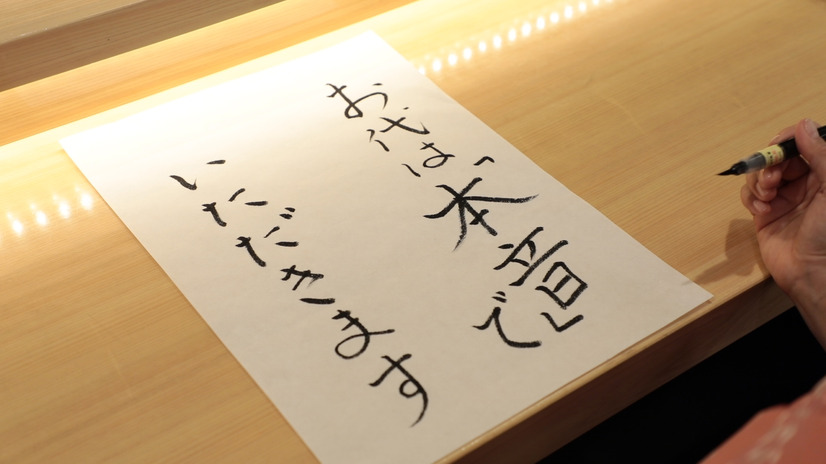 お代は、「本音」で
いただきます